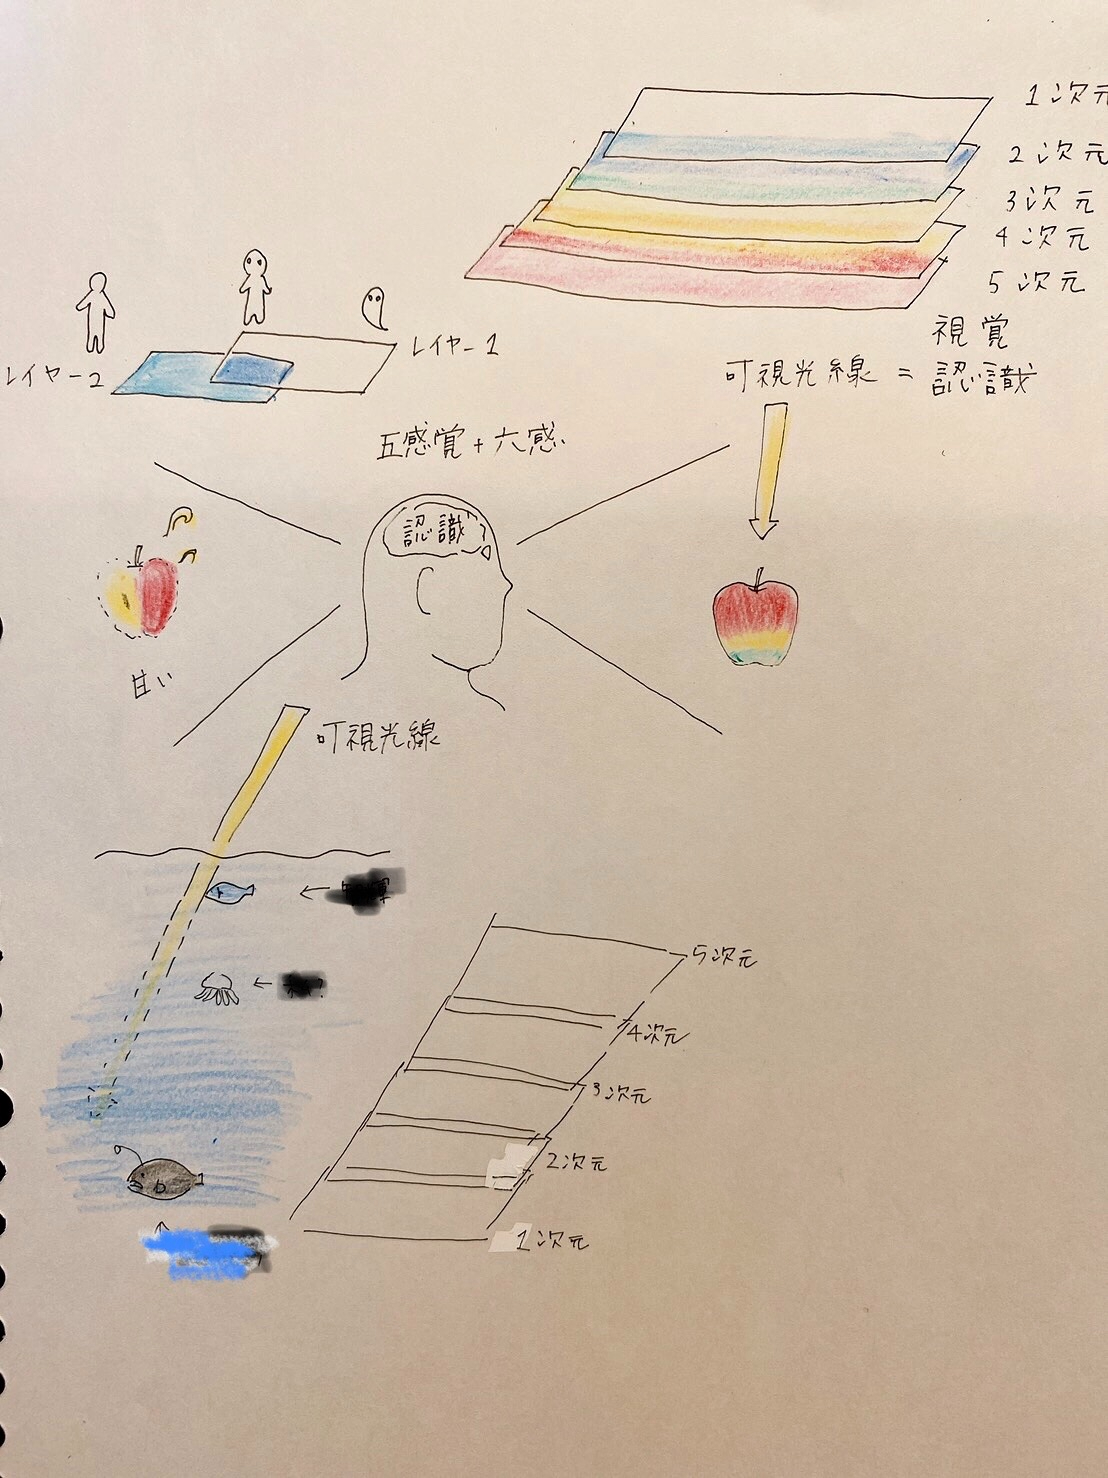 1次元
2次元
3次元
4次元
5次元
視覚
可視光線 = 認識
レイヤー1
レイヤー2
五感覚+六感
認識
甘い
可視光線
5次元
4次元
3次元
2次元
1次元